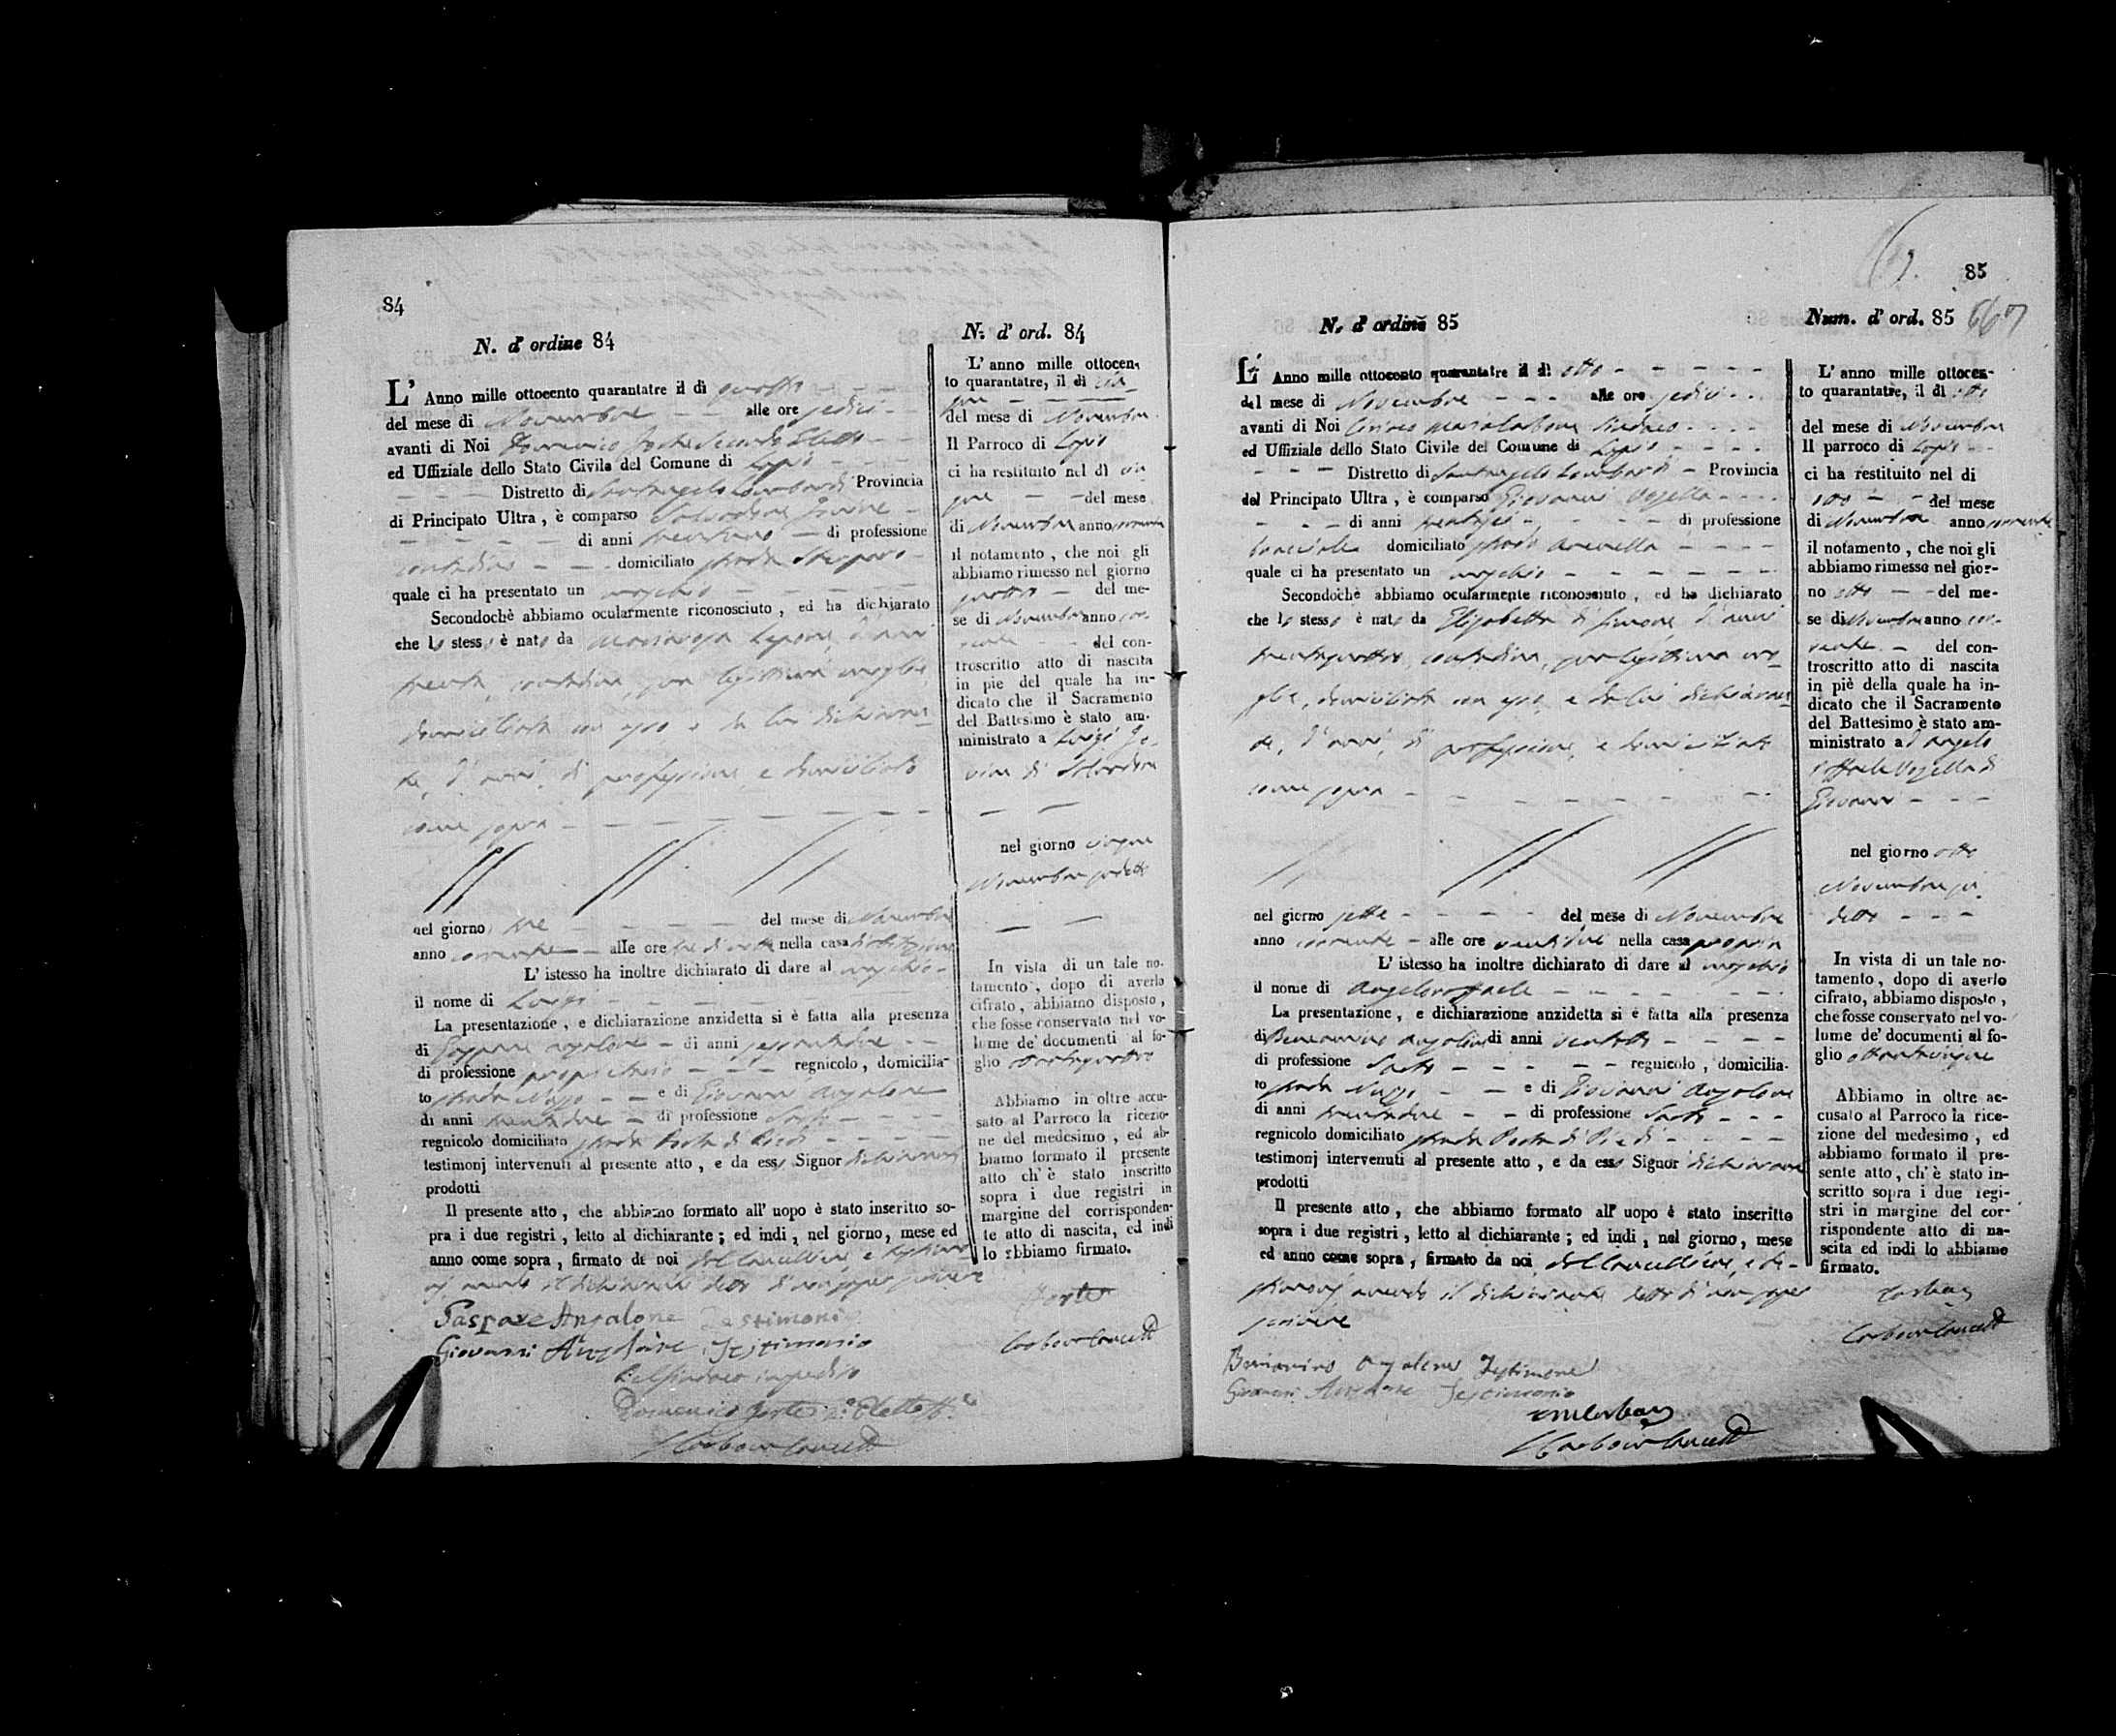 84
N. d' ordine 84
L' Anno mille ottocento quarantatre il dì quattro
del mese di Novembre alle ore sedici
avanti di Noi Domenico Forte Secondo Eletto
ed Uffiziale dello Stato Civile del Comune di Lapio
Distretto di Santangelo Lombardi Provincia
di Principato Ultra, è comparso Salvadore
di anni trentuno di professione
contadino domiciliato strada
quale ci ha presentato un maschio
Secondochè abbiamo ocularmente riconosciuto, ed ha dichiarato
che lo stesso è nato da Mariarosa Lepore, d'anni
trenta, contadina, sua legittima moglie,
domiciliata con esso e da lui dichiaran-
te, d'anni, di professione, e domiciliato
come sopra
nel giorno tre del mese di Novembre
anno corrente alle ore tre di notte nella casa di abitazione
L' istesso ha inoltre dichiarato di dare al maschio
il nome di Luigi
La presentazione, e dichiarazione anzidetta si è fatta alla presenza
di Gaspare Angalone di anni sessantadue
di professione proprietario regnicolo, domicilia-
to strada e di Giovanni Angalone
di anni trentadue di professione Sarto
regnicolo domiciliato strada Porta di Piedi
testimonj intervenuti al presente atto, e da esso Signor dichiarante
prodotti
Il presente atto, che abbiamo formato all' uopo è stato inseritto so-
pra i due registri, letto al dichiarante; ed indi, nel giorno, mese ed
anno come sopra, firmato da noi dal Cancelliere e testimo-
nj avendo il dichiarante detto di non saper scrivere
Gaspare Angalone Testimoni
Giovanni Angalone Testimonio
Il Sindaco impedito
Domenico Forte 2° Eletto
N: d' ord. 84
L' anno mille ottocen-
to quarantatre, il dì cin-
que
del mese di Novembre
Il Parroco di Lapio
ci ha restituito nel dì cin-
que del mese
di Novembre anno corrente
il notamento, che noi gli
abbiamo rimesso nel giorno
quattro del me-
se di Novembre anno cor-
rente del con-
troscritto atto di nascita
in piè del quale ha in-
dicato che il Sacramento
del Battesimo è stato am-
ministrato a Luigi
di Salvadore
nel giorno cinque
Novembre suddetto
In vista di un tale no-
tamento, dopo di averlo
cifrato, abbiamo disposto,
che fosse conservato nel vo-
lume de' documenti al fo-
glio ottantaquattro
Abbiamo in oltre accu-
sato al Parroco la ricezio-
ne del medesimo, ed ab-
biamo formato il presente
atto ch' è stato inscritto
sopra i due registri in
margine del corrisponden-
te atto di nascita, ed indi
lo abbiamo firmato.
Forte
85
N. d' ordine 85
L' Anno mille ottocento quarantatre il dì otto
del mese di Novembre alle ore sedici
avanti di Noi Sindaco
ed Uffiziale dello Stato Civile del Comune di Lapio
Distretto di Santangelo Lombardi Provincia
del Principato Ultra, è comparso Giovanni Vozella
di anni di professione
bracciale domiciliato strada Arenella
quale ci ha presentato un maschio
Secondochè abbiamo ocularmente riconosciuto, ed ha dichiarato
che lo stesso è nato da Elisabetta di Simone d'anni
trentaquattro, contadina, sua legittima mo-
glie, domiciliata con esso, e da lui dichiaran-
te, d'anni, di professione, e domiciliato
come sopra
nel giorno sette del mese di Novembre
anno corrente alle ore ventidue nella casa propria
L' istesso ha inoltre dichiarato di dare al maschio
il nome di Angeloraffaele
La presentazione, e dichiarazione anzidetta si è fatta alla presenza
di Beniamino Angalone di anni ventotto
di professione Sarto regnicolo, domicilia-
to strada e di Giovanni Angalone
di anni trentadue di professione Sarto
regnicolo domiciliato strada Porta di Piedi
testimonj intervenuti al presente atto, e da esso Signor dichiarante
prodotti
Il presente atto, che abbiamo formato all' uopo è stato inscritto
sopra i due registri, letto al dichiarante; ed indi, nel giorno, mese
ed anno come sopra, firmato da noi dal Cancelliere, e te-
stimonj avendo il dichiarante detto di non saper
scrivere
Beniamino Angalone Testimone
Giovanni Angalone Testimonio
Num. d' ord. 85
L' anno mille ottocen-
to quarantatrè, il dì otto
del mese di Novembre
Il parroco di Lapio
ci ha restituito nel di
otto del mese
di Novembre anno corrente
il notamento, che noi gli
abbiamo rimesso nel gior-
no otto del me-
se di Novembre anno cor-
rente del con-
troscritto atto di nascita
in piè della quale ha in-
dicato che il Sacramento
del Battesimo è stato am-
ministrato a d'Angelo
raffaele Vozella di
Giovanni
nel giorno otto
Novembre su
detto
In vista di un tale no-
tamento, dopo di averlo
cifrato, abbiamo disposto,
che fosse conservato nel vo-
lume de' documenti al fo-
glio ottantacinque
Abbiamo in oltre ac-
cusato al Parroco la rice-
zione del medesimo, ed
abbiamo formato il pre-
sente atto, ch' è stato in-
scritto sopra i due regi-
stri in margine del cor-
rispondente atto di na-
scita ed indi lo abbiamo
firmato.